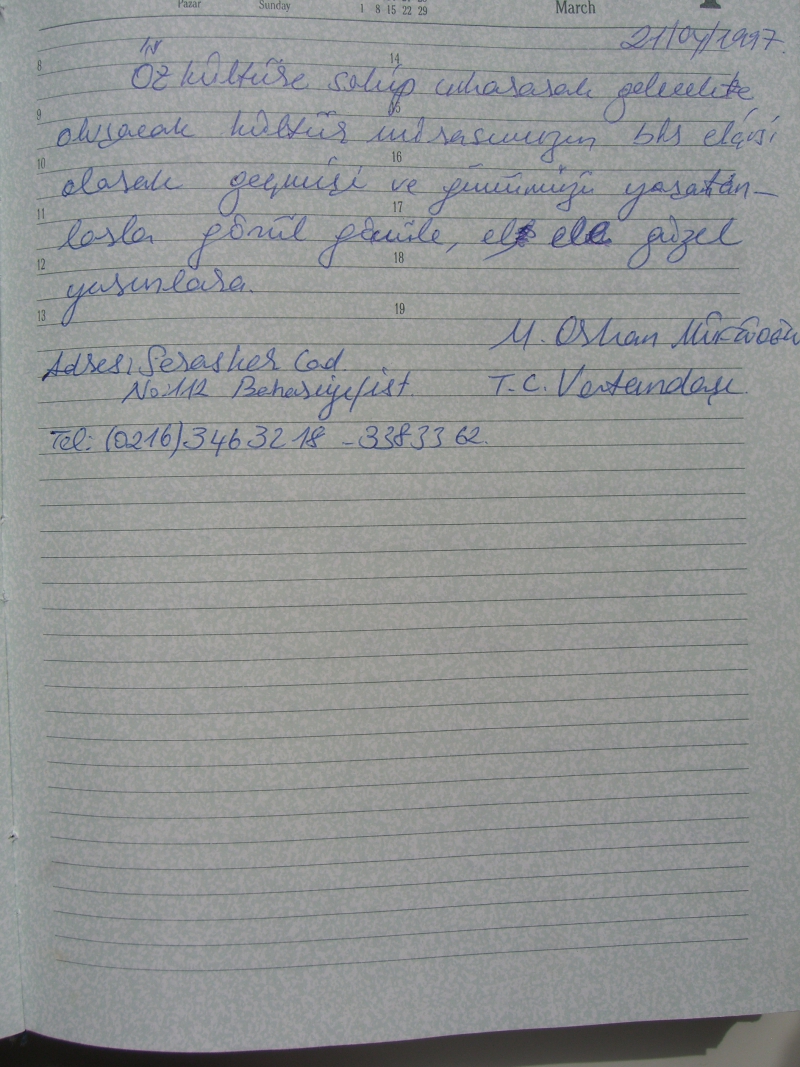 Pazar Sunday 1 8 15 22 29 March
21/04/1997
8 14
Öz kültüre sahip çıkararak gelecekte
9 15
oluşacak kültür mirasımızın birs elçisi
10 16
olarak geçmişi ve günümüzü yaşatan-
11 17
larla gönül gönüle, ele güzel
12 18
yarınlara.
13 19
M. Orhan
Adres: Serasker Cad.
No:112 Bahariye/ist. T.C. Vatandaşı
Tel: (0216) 346 32 18 - 338 33 62.